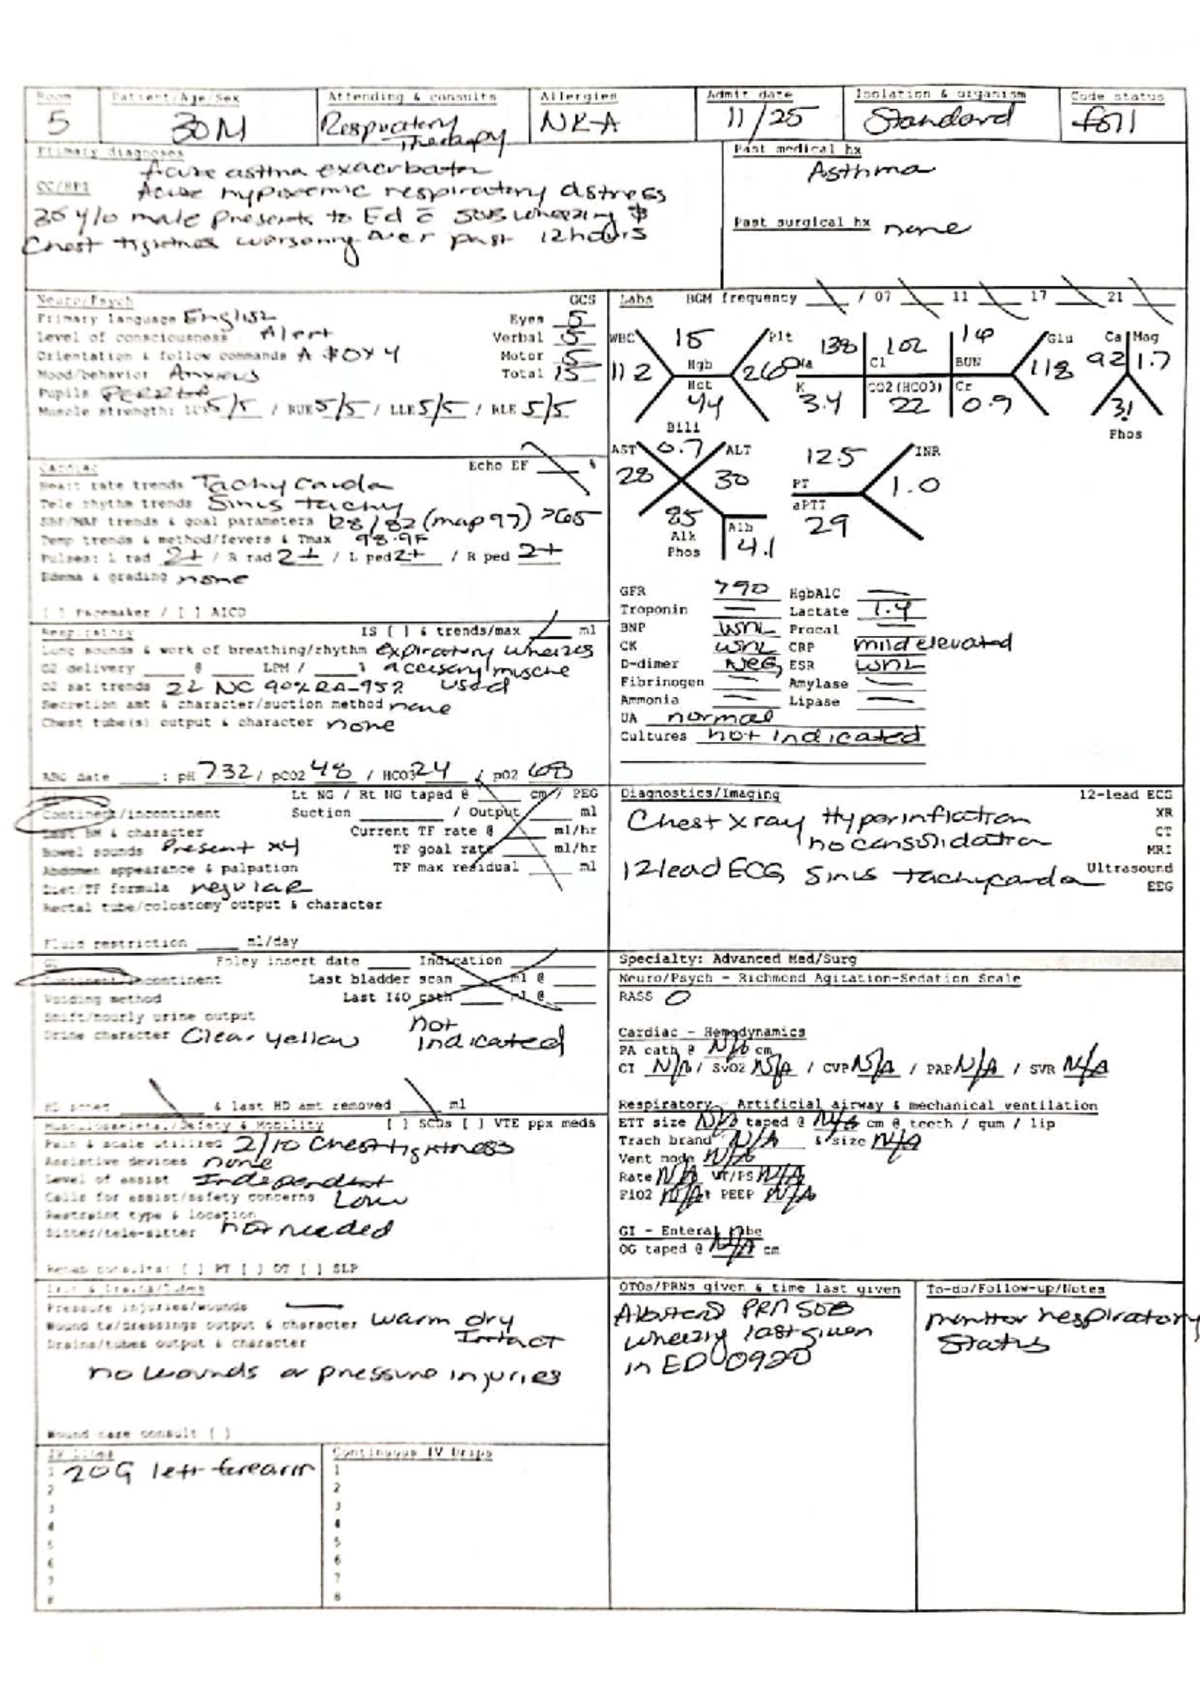 Room Patient/Age/Sex Attending & consults Allergies Admit date Isolation & organism Code status
5 30M Respiratory Therapy NKA 11/25 Standard full
Primary diagnoses Acute asthma exacerbation
CC/HPI Acute hypoxemic respiratory distress
35 y/o male presents to Ed c̄ SOB wheezing &
Chest tightness worsening over past 12 hours
Past medical hx
Asthma
Past surgical hx none
Neuro/Psych GCS
Primary language English Eyes 5
Level of consciousness Alert Verbal 5
Orientation & follow commands A & O x 4 Motor 5
Mood/behavior Anxious Total 15
Pupils
Muscle strength: LUE 5/5 / RUE 5/5 / LLE 5/5 / RLE 5/5
Labs BGM frequency / 07 11 17 21
WBC 11 2 15 Hgb Hct 44 Plt 260
Na 138 Cl 102 BUN 14 Glu 118
K 3.4 CO2 (HCO3) 22 Cr 0.9
Ca 92 Mag 1.7 31 Phos
Bili 0.7 AST 28 ALT 30 85 Alk Phos Alb 4.1
12.5 PT INR 1.0 aPTT 29
GFR 790 HgbA1C —
Troponin — Lactate 1.4
BNP WNL Procal —
CK WNL CRP mild elevated
D-dimer Neg ESR WNL
Fibrinogen — Amylase —
Ammonia — Lipase —
UA normal
Cultures not indicated
Cardiac Echo EF ___ %
Heart rate trends Tachycarda
Tele rhythm trends Sinus tachy
SBP/MAP trends & goal parameters 128/82 (map 97) >65
Temp trends & method/fevers & Tmax 98.9F
Pulses: L rad 2+ / R rad 2+ / L ped 2+ / R ped 2+
Edema & grading none
[ ] Pacemaker / [ ] AICD
Respiratory IS [ ] & trends/max ml
Lung sounds & work of breathing/rhythm expiratory wheezes
O2 delivery @ LPM / % accessory muscle
O2 sat trends 2L NC 90% RA-95% used
Secretion amt & character/suction method none
Chest tube(s) output & character none
ABG date : pH 732 / pCO2 48 / HCO3 24 / pO2 68
Lt NG / Rt NG taped @ cm / PEG
Continent/incontinent Suction / Output ml
Last BM & character Current TF rate @ ml/hr
Bowel sounds Present x4 TF goal rate ml/hr
Abdomen appearance & palpation TF max residual ml
Diet/TF formula regular
Rectal tube/colostomy output & character
Fluid restriction ml/day
Diagnostics/Imaging 12-lead ECG
XR
CT
MRI
Ultrasound
EEG
Chest xray Hyperinflation
no consolidation
12 lead ECG Sinus tachycarda
GU Foley insert date Indication
Continent/incontinent Last bladder scan ml @
Voiding method Last I&O cath ml @
Shift/hourly urine output not
Urine character Clear yellow indicated
HD sched & last HD amt removed ml
Specialty: Advanced Med/Surg
Neuro/Psych - Richmond Agitation-Sedation Scale
RASS 0
Cardiac - Hemodynamics
PA cath @ N/A cm
CI N/A / SvO2 N/A / CVP N/A / PAP N/A / SVR N/A
Respiratory - Artificial airway & mechanical ventilation
ETT size N/A taped @ N/A cm @ teeth / gum / lip
Trach brand N/A & size N/A
Vent mode N/A
Rate N/A VT/PS N/A
FiO2 N/A PEEP N/A
GI - Enteral tube
OG taped @ N/A cm
Musculoskeletal/Safety & Mobility [ ] SCDs [ ] VTE ppx meds
Pain & scale utilized 2/10 Chest tightness
Assistive devices none
Level of assist Independent
Calls for assist/safety concerns Low
Restraint type & location
Sitter/tele-sitter not needed
Rehab consults: [ ] PT [ ] OT [ ] SLP
Skin & Drains/Tubes
Pressure injuries/wounds —
Wound tx/dressings output & character warm dry
Drains/tubes output & character Intact
no wounds or pressure injuries
Wound care consult [ ]
OTOs/PRNs given & time last given
Albuterol PRN SOB
wheezing last given
in ED 0920
To-do/Follow-up/Notes
monitor respiratory
Status
IV Lines Continuous IV Drips
1 20G left forearm 1
2 2
3 3
4 4
5 5
6 6
7 7
8 8